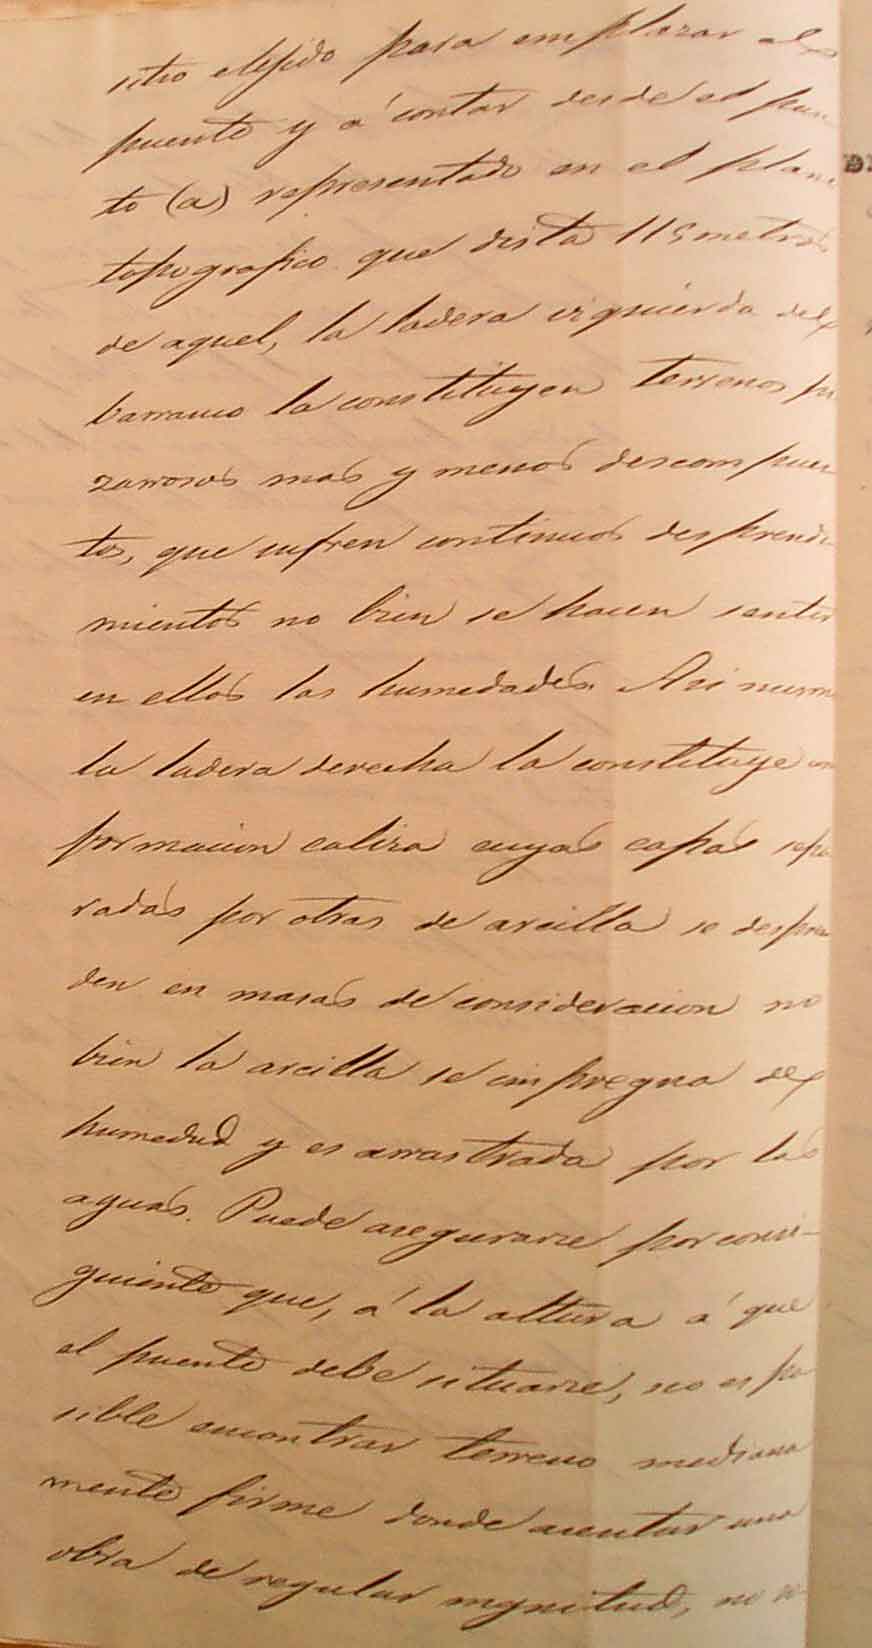 sitio elejido para emplazar el
puente y á contar desde el pun
to (a) representado en el plano
topografico que dista 115 metros
de aquel, la ladera izquierda del
barranco la constituyen terrenos pi
zarrosos mas y menos descompues
tos, que sufren continuos desprendi
mientos no bien se hacen sentir
en ellos las humedades. Asi mismo
la ladera derecha la constituye una
formacion caliza cuyas capas sepa
radas por otras de arcilla se despren
den en masas de consideracion no
bien la arcilla se impregna de
humedad y es arrastrada por las
aguas. Puede asegurarse por consi-
guiente que, á la altura á que
el puente debe situarse, no es po
sible encontrar terreno mediana
mente firme donde asentar una
obra de regular mgnitud, no